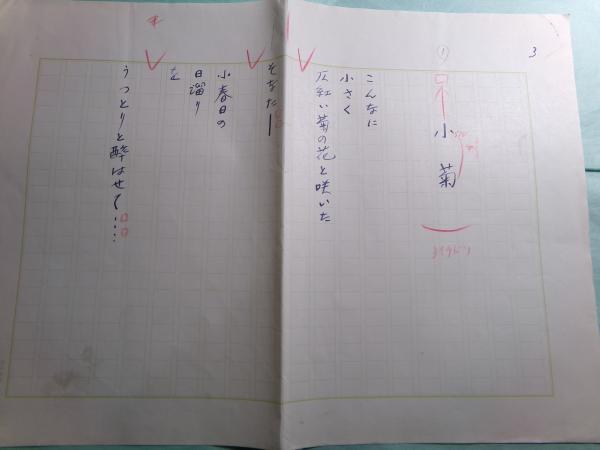 3
①
小菊
こんなに
小さく
仄紅い菊の花と咲いた
そなた―
小春日の
日溜り
を
うっとりと酔はせ